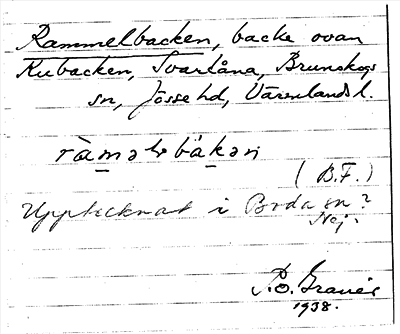 Rammelbacken, backe ovan
Kubacken, Svartåna, Brunskogs
sn, Jösse hd, Värmlands l.
(B.F.)
Upptecknat i Boda sn?
Nej.
1938.